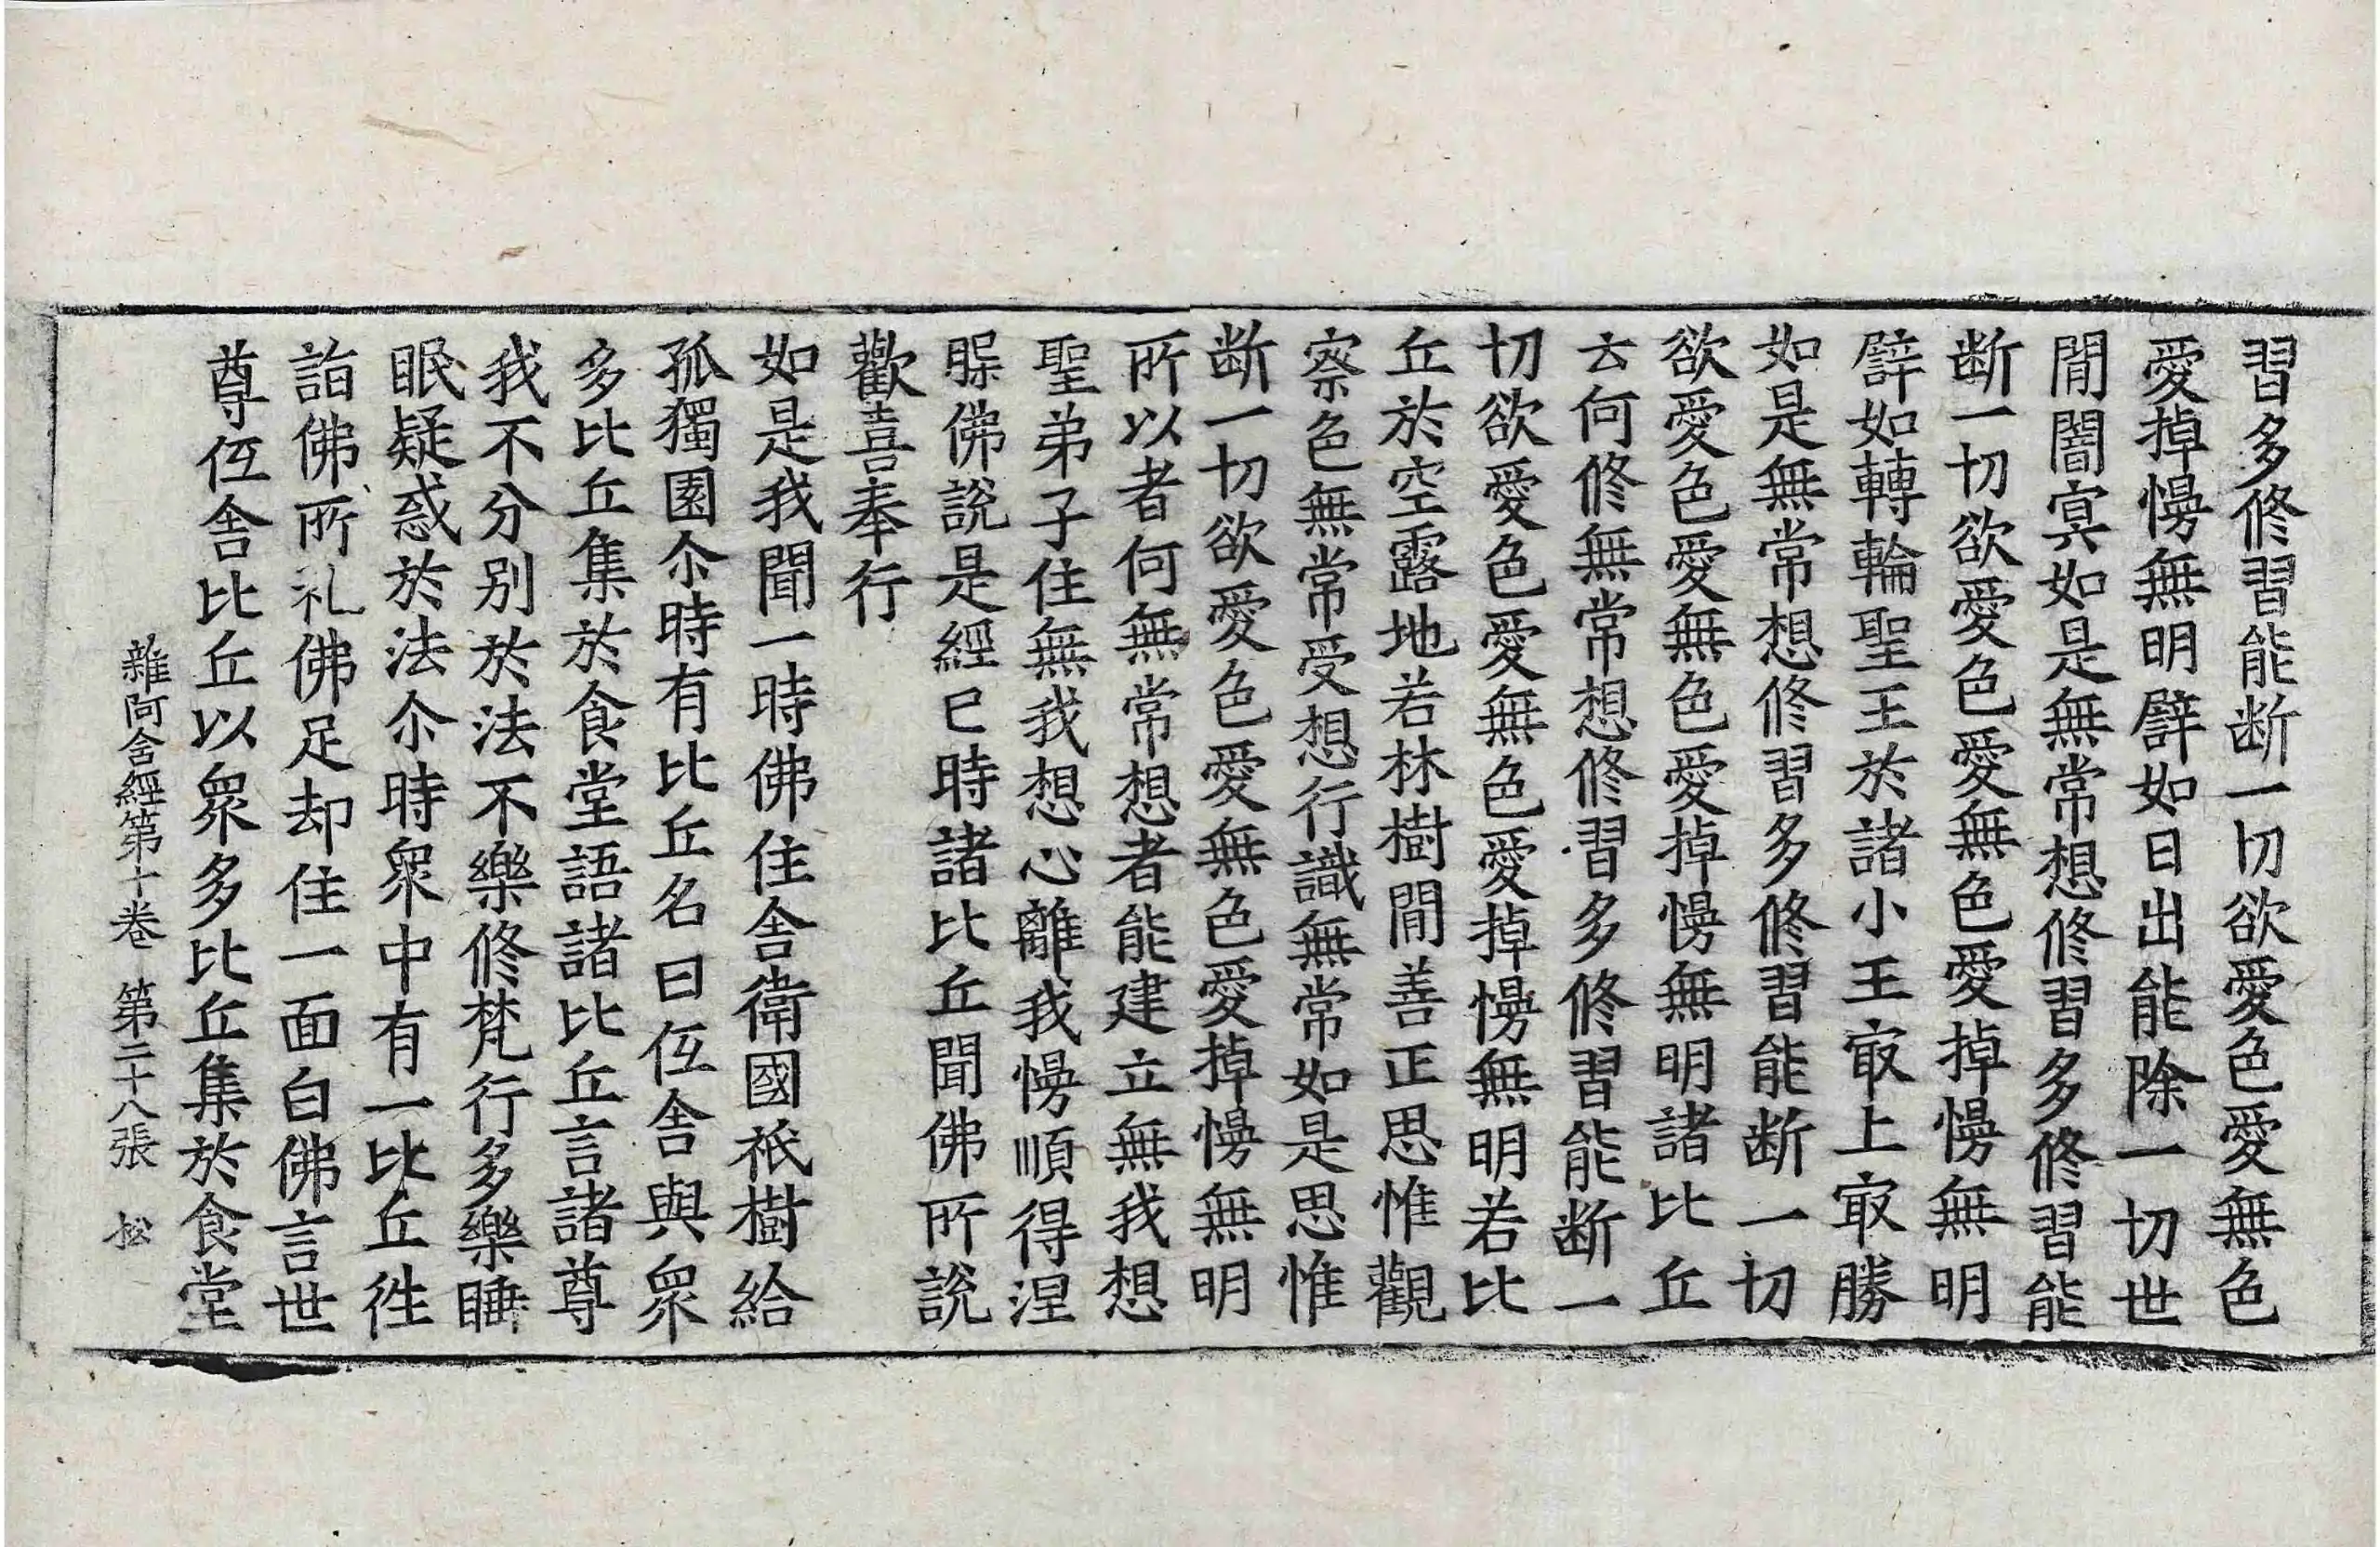 習多修習能断一切欲愛色愛無色
愛掉慢無明譬如日出能除一切世
閒闇㝠如是無常想修習多修習能
断一切欲愛色愛無色愛掉慢無明
譬如轉輪聖王於諸小王㝡上㝡勝
如是無常想修習多修習能断一切
欲愛色愛無色愛掉慢無明諸比丘
云何修無常想修習多修習能断一
切欲愛色愛無色愛掉慢無明若比
丘於空露地若林樹閒善正思惟觀
察色無常受想行識無常如是思惟
断一切欲愛色愛無色愛掉慢無明
所以者何無常想者能建立無我想
聖弟子住無我想心離我慢順得涅
槃佛說是經已時諸比丘聞佛所說
歡喜奉行
如是我聞一時佛住舍衛國祇樹給
孤獨園尒時有比丘名曰仾舍與衆
多比丘集於食堂語諸比丘言諸尊
我不分别於法不樂修梵行多樂睡
眠疑惑於法尒時衆中有一比丘徃
詣佛所礼佛足却住一面白佛言世
尊仾舍比丘以衆多比丘集於食堂
雜阿含經第十卷 第二十八張 松